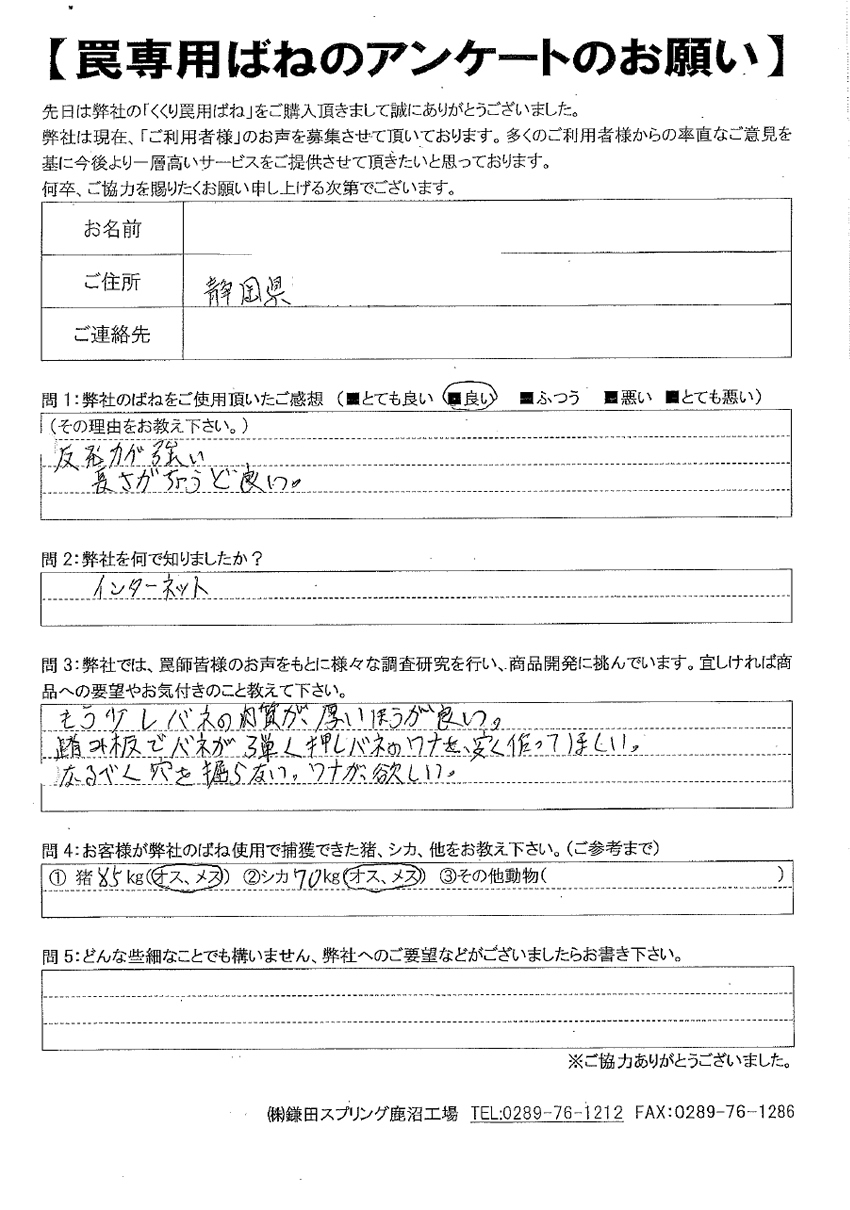 【罠専用ばねのアンケートのお願い】
先日は弊社の「くくり罠用ばね」をご購入頂きまして誠にありがとうございました。
弊社は現在、「ご利用者様」のお声を募集させて頂いております。多くのご利用者様からの率直なご意見を
基に今後より一層高いサービスをご提供させて頂きたいと思っております。
何卒、ご協力を賜りたくお願い申し上げる次第でございます。
お名前
ご住所 静岡県
ご連絡先
問1:弊社のばねをご使用頂いたご感想 (■とても良い ■良い ■ふつう ■悪い ■とても悪い)
(その理由をお教え下さい。)
反発力が強い
長さがちょうど良い。
問2:弊社を何で知りましたか?
インターネット
問3:弊社では、罠師皆様のお声をもとに様々な調査研究を行い、商品開発に挑んでいます。宜しければ商
品への要望やお気付きのこと教えて下さい。
もう少しバネの肉質が、厚いほうが良い。
踏み板でバネが弾く押しバネのワナを、安く作ってほしい。
なるべく穴を掘らない。ワナが、欲しい。
問4:お客様が弊社のばね使用で捕獲できた猪、シカ、他をお教え下さい。(ご参考まで)
① 猪 85kg(オス、メス) ②シカ 70kg(オス、メス) ③その他動物( )
問5:どんな些細なことでも構いません、弊社へのご要望などがございましたらお書き下さい。
※ご協力ありがとうございました。
㈱鎌田スプリング鹿沼工場 TEL:0289-76-1212 FAX:0289-76-1286